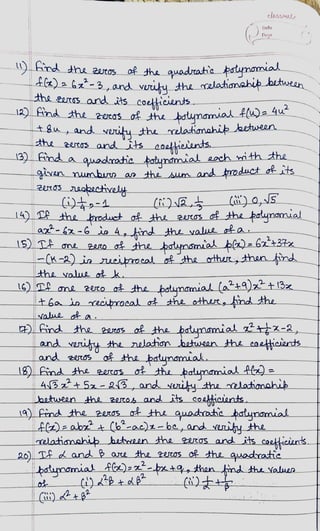 classmate
Date
Page
11) Find the zeros of the quadratic polynomial
f(x) = 6x² - 3, and verify the relationship between
the zeros and its coefficients.
12) Find the zeros of the polynomial f(u) = 4u²
+ 8u, and verify the relationship between
the zeros and its coefficients.
13) Find a quadratic polynomial each with the
given numbers as the sum and product of its
zeros respectively.
(i) 1/4, -1 (ii) √2, 1/3 (iii) 0, √5
14) If the product of the zeros of the polynomial
ax² - 6x - 6 is 4, find the value of a.
15) If one zero of the polynomial p(x) = 6x² + 37x
- (k-2) is reciprocal of the other, then find
the value of k.
16) If one zero of the polynomial (a²+9)x² + 13x
+ 6a is reciprocal of the other, find the
value of a.
17) Find the zeros of the polynomial x² + 1/6 x - 2,
and verify the relation between the coefficients
and zeros of the polynomial.
18) Find the zeros of the polynomial f(x) =
4√3 x² + 5x - 2√3, and verify the relationship
between the zeros and its coefficients.
19) Find the zeros of the quadratic polynomial
f(x) = abx² + (b²-ac)x - bc, and verify the
relationship between the zeros and its coefficients.
20) If α and β are the zeros of the quadratic
polynomial f(x) = x² - px + q, then find the values
of (i) α²β + αβ² (ii) 1/α + 1/β
(iii) α² + β²